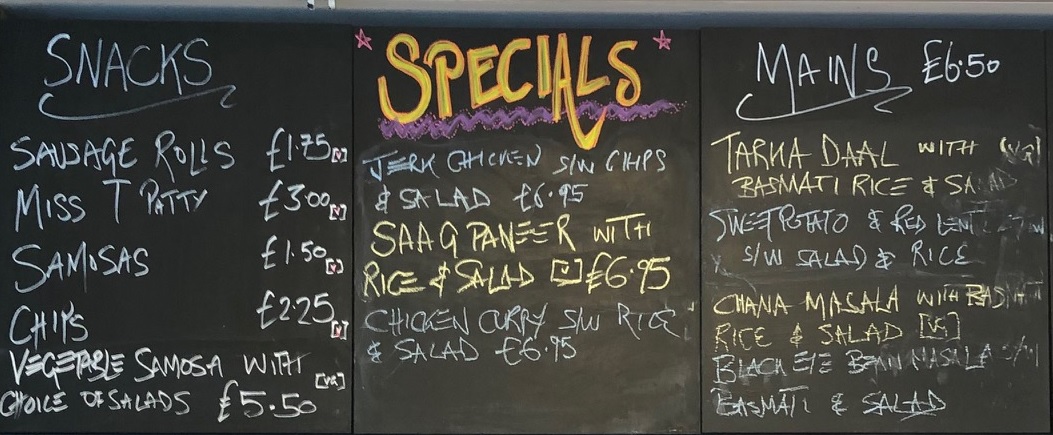 SNACKS
SAUSAGE ROLLS £1.75 [V]
MISS T PATTY £3.00 [V]
SAMOSAS £1.50 [V]
CHIPS £2.25 [V]
VEGETABLE SAMOSA WITH [VG]
CHOICE OF SALADS £5.50
SPECIALS
JERK CHICKEN S/W CHIPS
& SALAD £6.95
SAAG PANEER WITH
RICE & SALAD [V] £6.95
CHICKEN CURRY S/W RICE
& SALAD £6.95
MAINS £6.50
TARKA DAAL WITH [VG]
BASMATI RICE & SALAD
SWEETPOTATO & RED LENTIL
S/W SALAD & RICE
CHANA MASALA WITH BASMATI
RICE & SALAD [VG]
BLACK EYE BEAN MASALA S/W
BASMATI & SALAD